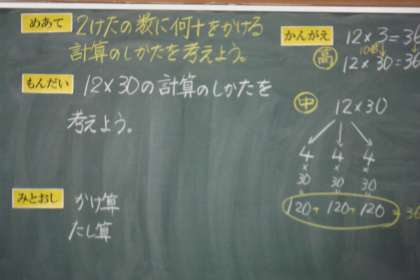 めあて
2けたの数に何十をかける
計算のしかたを考えよう。
もんだい
12×30の計算のしかたを
考えよう。
みとおし
かけ算
たし算
かんがえ
12×3=36
高
10倍
12×30=36
中
12×30
4 4 4
× × ×
30 30 30
120+120+120=36